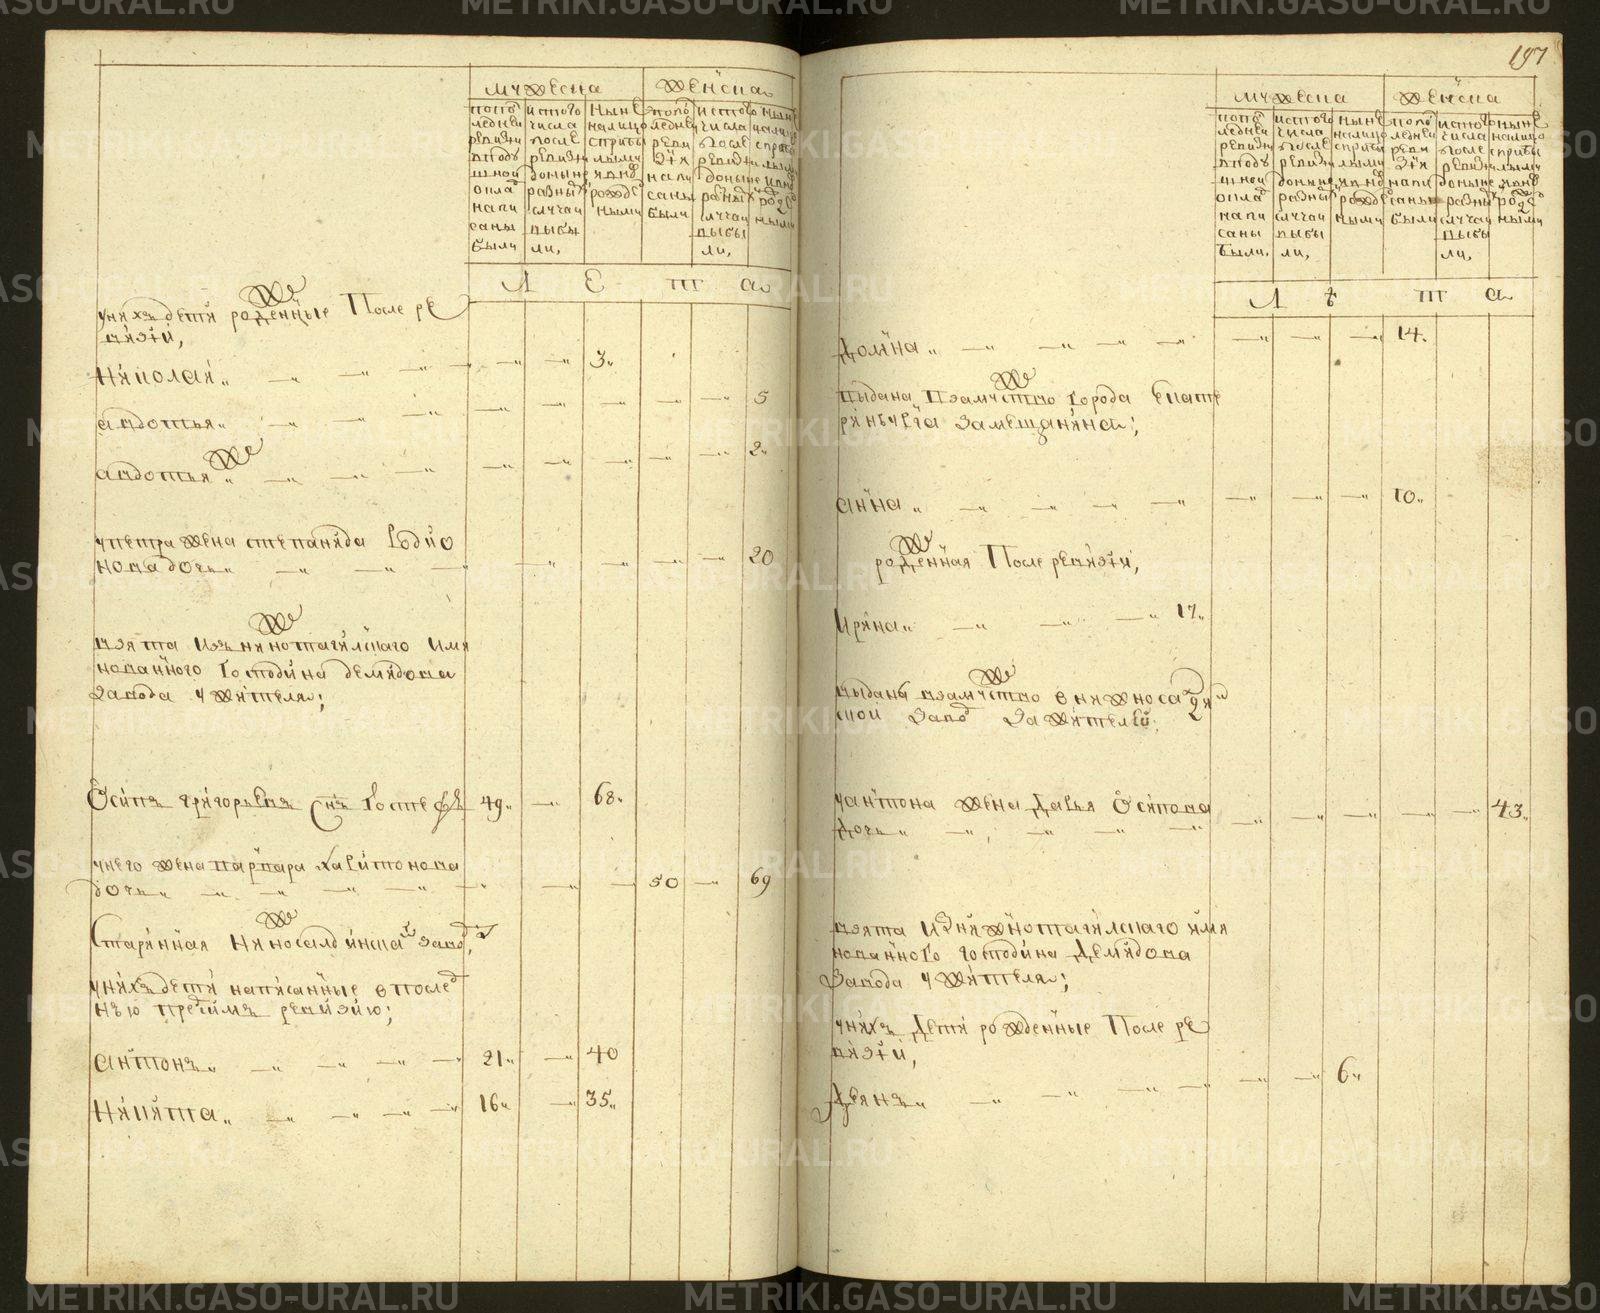 мужеска
женска
по по
следней
ревизии
в подуш
ной
окла
напи
саны
были
ис того
числа
после
ревизии
до ныне
разны
случаи
выбы
ли,
ныне
налицо
с прибы
лыми
и вно
рожде
ными
по по
следней
реви
зїи
напи
саны
были
ис того
числа
после
ревизии
до ныне
разны
случаи
выбы
ли,
ныне
налицо
с прибы
лыми
и вно
рожде
ными
Л Е т а
у них детй рожденные После ре
вйзїй,
Нйколай „ 3 „
авдотья „ 5
авдотья „ 2 „
у петра жена степанйда Родйо
нова дочь „ 20
взята из нижнотагйлскаго имя
нованного Господйна демйдова
завода у жйтеля;
Осйпъ григорьевъ снъ Гостевъ 49 „ 68 „
у него жена варвара харйтонова
дочь „ 50 69
Старйнная Нижносалдинска завод,
у нихъ детй напйсанные в послед
нъю пред симъ ревйзйю;
антонъ „ 21 „ 40
Нйкйта „ 16 „ 35 „
197
мужеска
женска
по по
следней
ревизи
в подуш
ной
окла
напи
саны
были.
ис того
числа
после
ревизи
до ныне
разны
случаи
выбы
ли,
ныне
налицо
с прибы
лыми
и вно
рожде
ными
по по
следней
реви
зїя
напи
саны
были
ис того
числа
после
ревизи
до ныне
разны
случаи
выбы
ли,
ныне
налицо
с прибы
лыми
и вно
рожде
ными
Л ѣ т а
Домна „ 14.
выдана в замужство Города Екате
рйнбурга за мещанйна;
анна „ 10 „
рожденная После ревйзїй,
Ирйна „ 17 „
выданы в замужство в нижноса
ской завод за жйтелей;
у антона жена Дарья Осйпова
дочь „ 43 „
взята из нижнотагйлскаго имя
нованного господйна Демйдова
Завода у жйтеля;
у нихъ Детй рожденные После ре
вйзїй,
6 „